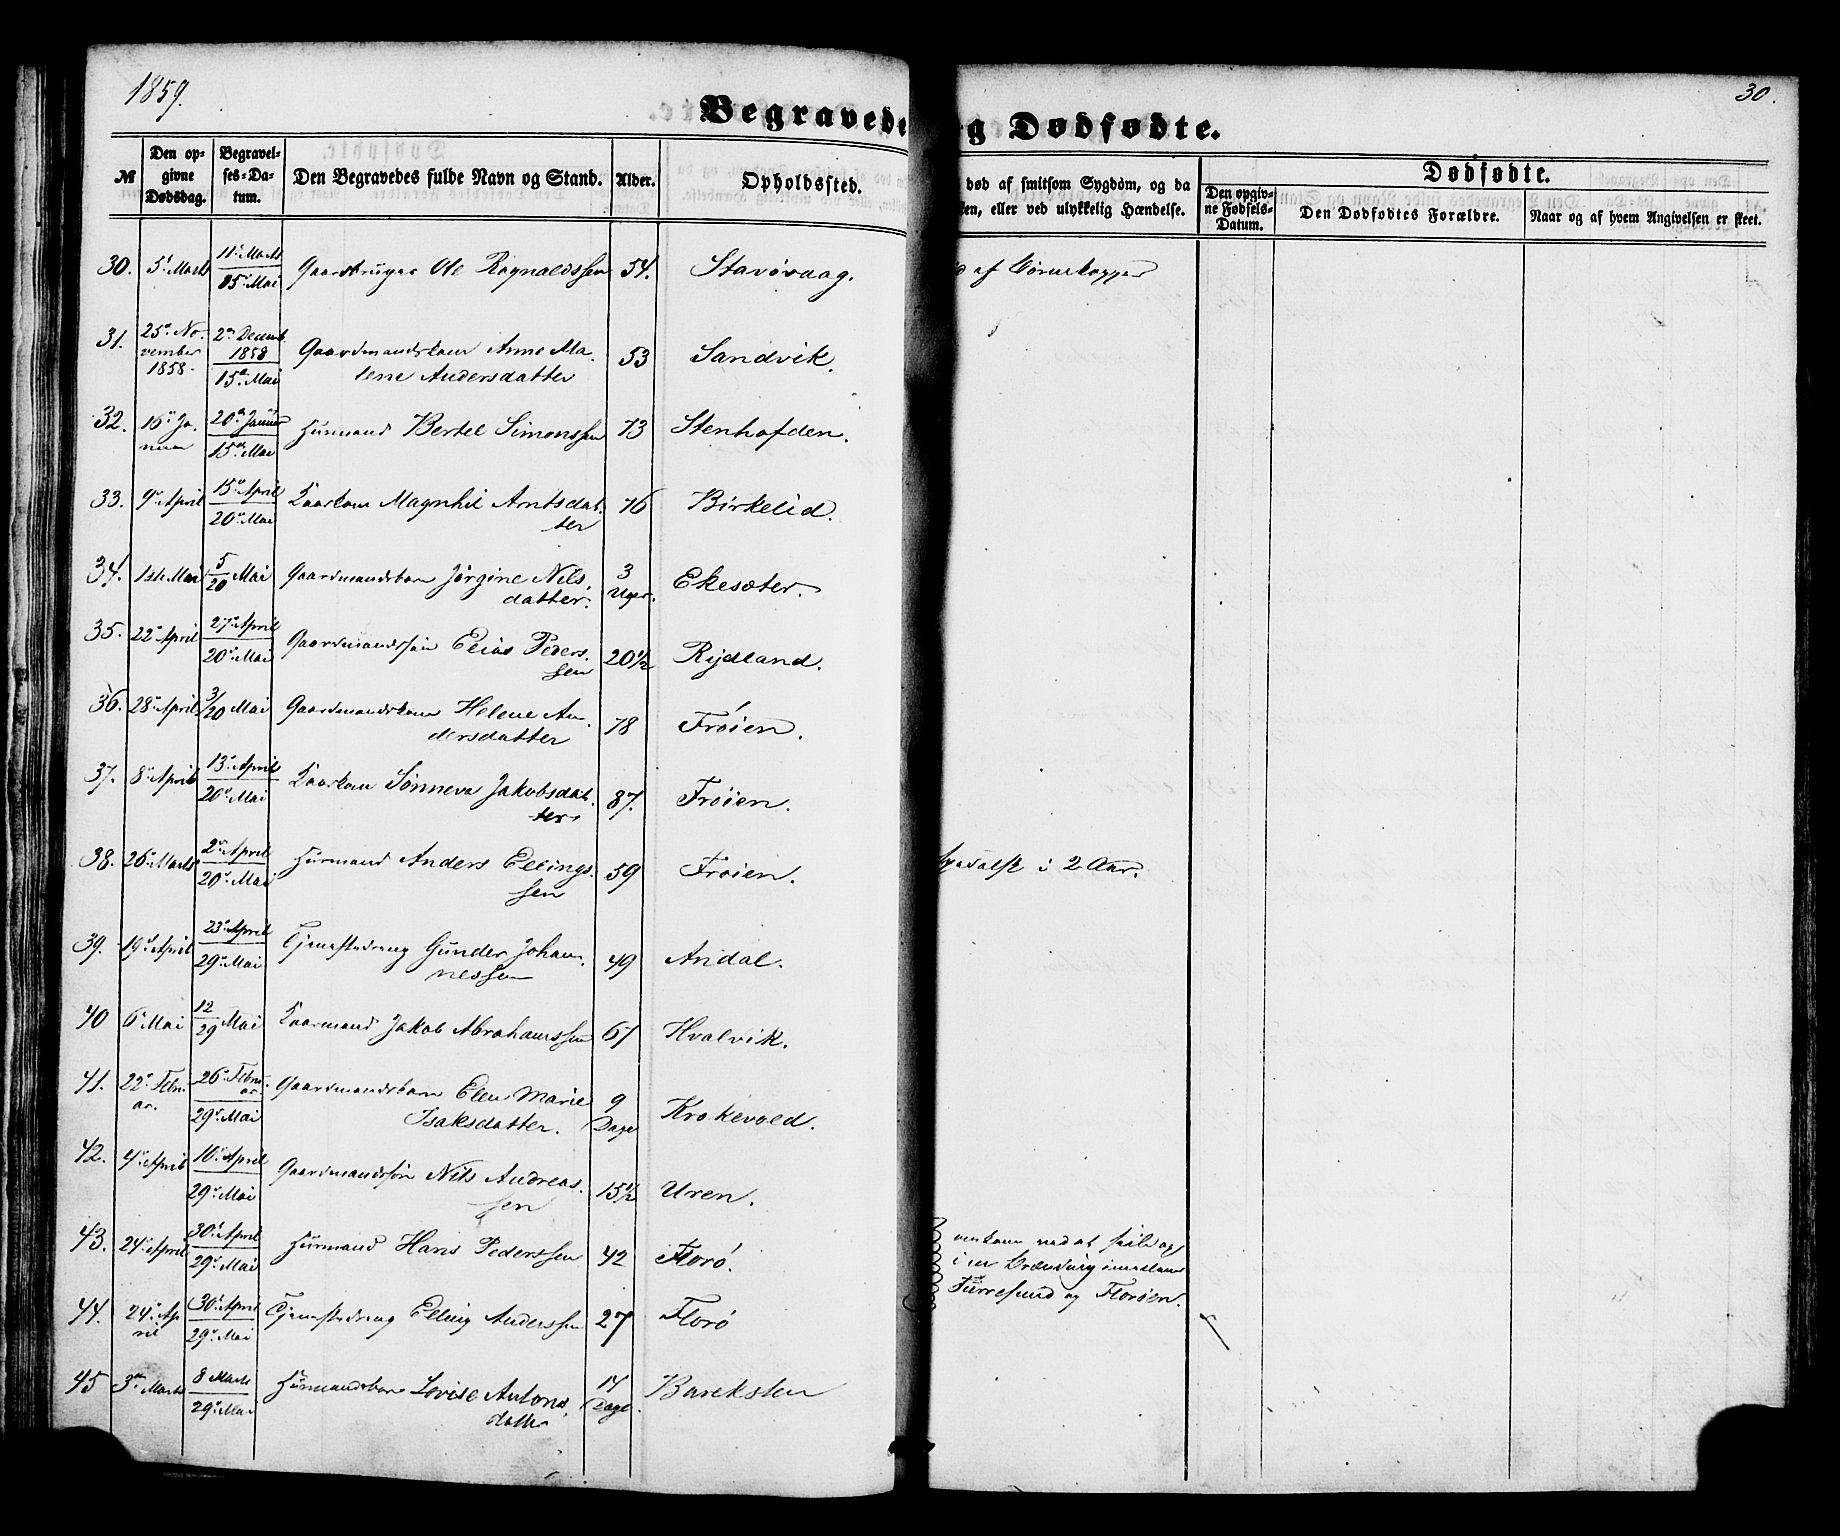 1859.
30.
Begravede
g Dødfødte.
№ Den op-givne Dødsdag. Begravel-ses-Da-tum. Den Begravedes fulde Navn og Stand. Alder. Opholdssted.
død af smitsom Sygdom, og da
ken, eller ved ulykkelig Hændelse.
Dødfødte.
Den opgiv-ne Fødsels-Datum. Den Dødfødtes Forældre. Naar og af hvem Angivelsen er skeet.
30. 5t Marts 11t Marts 15t Mai Gaardbruger Ole Rognaldssen 54. Stavøvaag. af Børnekopper
31. 25de November 1858. 2den Decemb. 1858 15de Mai Gaardmandskone Anne Ma-
lene Andersdatter 53 Sandvik.
32. 16de Januar 20de Januar 15de Mai Huusmand Bertel Simonssen 73 Stenhofden.
33. 9de April 15de April 20de Mai Kaarkone Magnhil Arntsdat-
ter 76 Birkelid.
34. 1ste Mai 5/20 Mai Gaardmandsbarn Jørgine Nils-
datter. 3 Uger. Ekesæter.
35. 22de April 27de April 20de Mai Gaardmandssøn Elias Peders-
sen 20 1/2 Rydland.
36. 28de April 3/20 Mai Gaardmandskone Helene An-
dersdatter 78 Frøien.
37. 8de April 13de April 20de Mai Kaarkone Sønneva Jakobsdat-
ter 87. Frøien.
38. 26de Marts 2den April 20de Mai Huusmand Anders Ellings-
sen 59 Frøien. Spedalsk i 2 Aar.
39. 19de April 23de April 29de Mai Tjenestedreng Gunder Johan-
nessen 49 Andal.
40 6te Mai 12/29 Mai Kaarmand Jakob Abrahamssen 67 Hvalvik.
41. 22de Februar. 26de Februar. 29de Mai Gaardmandsbarn Elen Marie
Isaksdatter. 9 Dage Krokevold.
42. 4de April 10de April 29de Mai Gaardmandssøn Nils Andreas-
sen 15 1/2 Uren.
43. 24de April 30te April 29de Mai Huusmand Hans Pederssen 42 Florø.
omkom ved at seile op
i en Brænding imellem
Furresund og Florøen.
44. 24de April 30te April 29de Mai Tjenestedreng Elling Anderssen 27 Florø
45 3die Marts 8 Marts 29de Mai Huusmandsbarn Lovise Antons-
datter 14 Dage. Bareksten